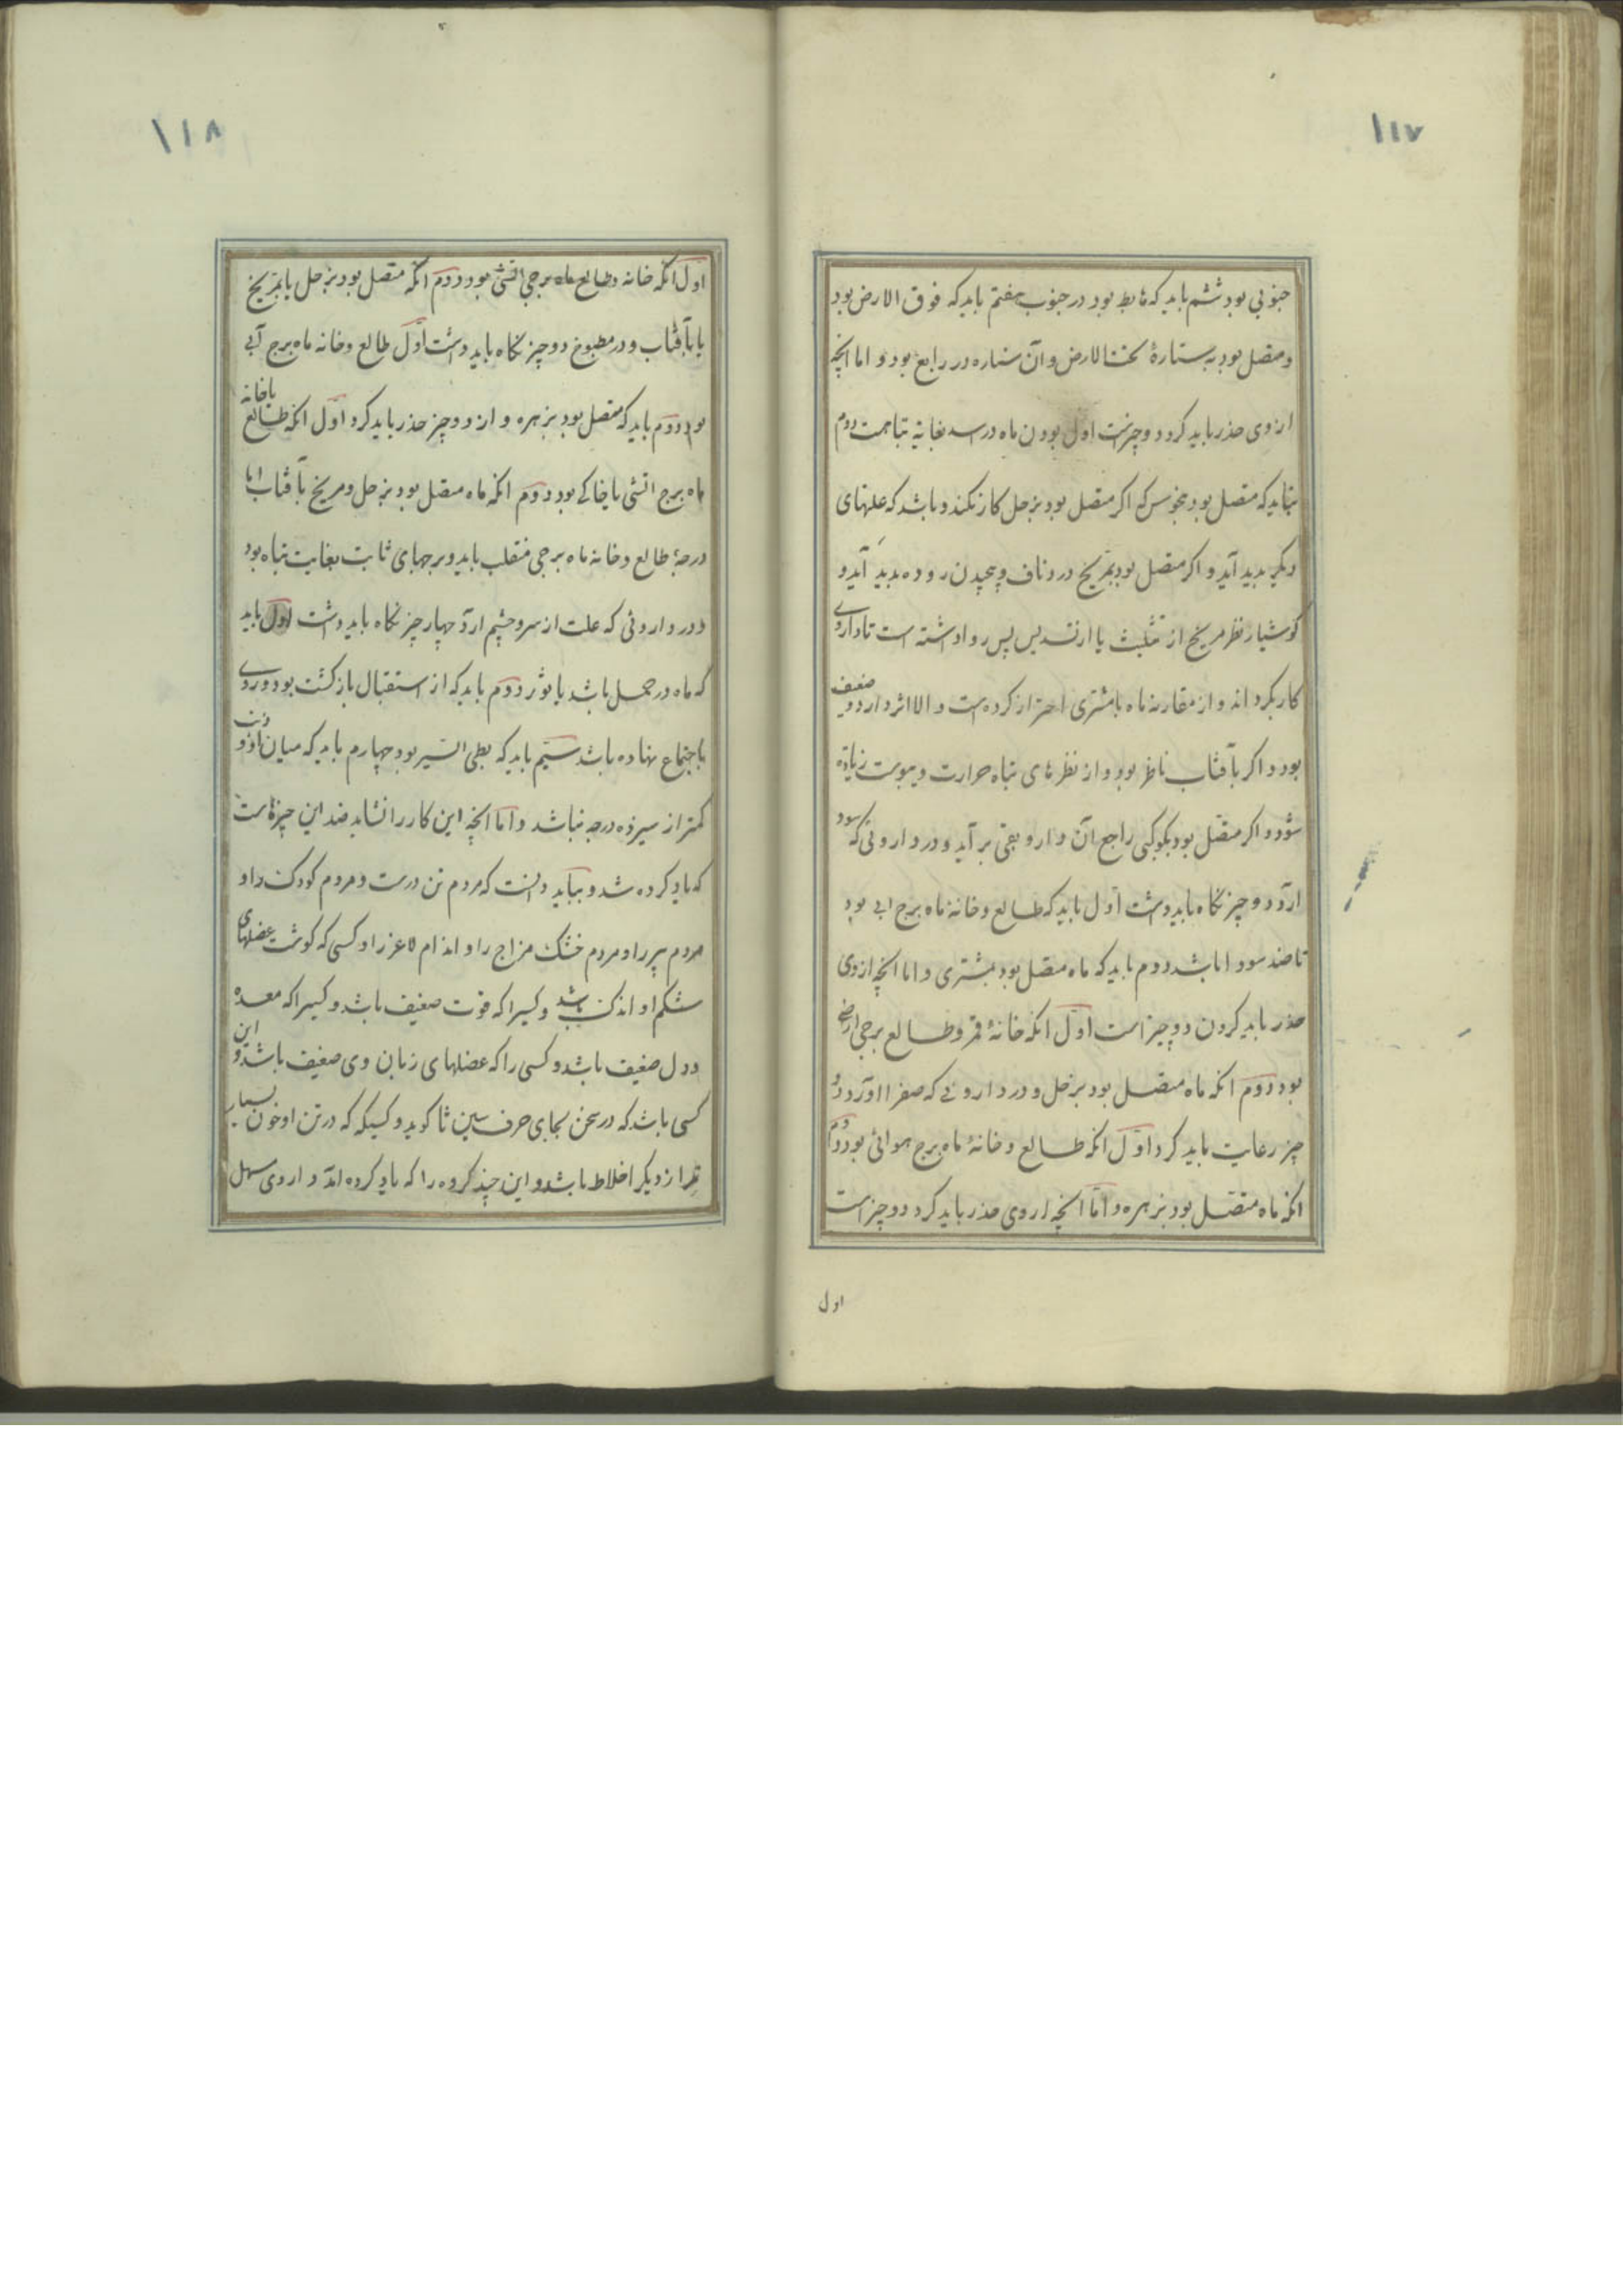 ۱۱۷
جنوبی بود ششم باید که هابط بود در جنوب هفتم باید که فوق الارض بود
و متصل بود به ستارهٔ تحت الارض و آن ستاره در رابع بود و اما انچه
از وی حذر باید کرد دو چیزست اول بودن ماه در اسد بغایة تباهست دوم
نباید که متصل بود بنحوس که اگر متصل بود بزحل کار نکند و باشد که علتهای
دیگر پدید آید و اگر متصل بود بمریخ درد ناف و پیچیدن روده پدید آید و
کوشیار نظر مریخ از تثلیث یا از تسدیس پس روا داشته است تا داروی
کار بکرد اند و از مقارنه ماه با مشتری احتراز کرده است و الا اثر دارو ضعیف
بود و اگر بآفتاب ناظر بود و از نظرهای تباه حرارت و یبوست زیاده
شود و اگر متصل بود بکوکبی راجع آن دارو بقی بر آید و در داروئی که سودا
ارد دو چیز نکاه باید داشت اول باید که طالع و خانهٔ ماه برج ابی بود
تا ضد سودا باشد دوم باید که ماه متصل بود بمشتری و اما انچه از وی
حذر باید کردن دو چیز است اول انکه خانهٔ قمر و طالع برجی ارضی
بود دوم انکه ماه متصل بود بزحل و در داروئی که صفرا اورد دو
چیز رعایت باید کرد اول انکه طالع و خانهٔ ماه برج هوائی بود دوم
انکه ماه متصل بود بزهره و اما انچه از وی حذر باید کرد دو چیز است
اول
۱۱۸
اول انکه خانه و طالع ماه برجی اتشی بود دوم انکه متصل بود بزحل یا بمریخ
یا بآفتاب و در مطبوخ دو چیز نکاه باید داشت اول طالع و خانه ماه برج آبی
بود دوم باید که متصل بود بزهره و از دو چیز حذر باید کرد اول انکه طالع یا خانه
ماه برج اتشی یا خاکی بود دوم انکه ماه متصل بود بزحل و مریخ یا آفتاب اما
درجهٔ طالع و خانه ماه برجی منقلب باید و برجهای ثابت بغایت تباه بود
و در داروئی که علت از سر و چشم ارد چهار چیز نکاه باید داشت اول باید
که ماه در حمل باشد یا ثور دوم باید که از استقبال بازکشته بود و روی
باجتماع نهاده باشد سیم باید که بطی السیر بود چهارم باید که میان او و ذنب
کمتر از سیزده درجه نباشد و اما انچه این کار را نشاید ضد این چیزهاست
که یاد کرده شد و بباید دانست که مردم تن درست و مردم کودک را و
مردم پیر را و مردم خشک مزاج را و اندام لاغر را و کسی که کوشت عضلهای
شکم او اندک باشد و کسیرا که قوت ضعیف باشد و کسیرا که معده
و دل ضعیف باشد و کسی را که عضلهای زبان وی ضعیف باشد و این
کسی باشد که در سخن بجای حرف سین ثا کوید و کسیکه که در تن او خون بسیار
تر از دیگر اخلاط باشد و این چند کروه را که یاد کرده اند داروی سهل